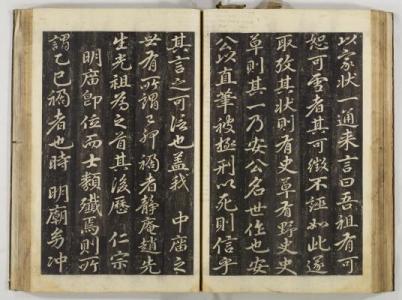 以家狀一通来言曰吾祖有可
恕可雪者其可徵不誣如此遂
取攷其狀則有史草有野史史
草則其一乃安公名世作也安
公以直筆被極刑以死則信乎
其言之可信也盖我 中廟之
世有所謂己卯禍者靜庵趙先
生光祖為之首其後歷 仁宗
明廟卽位而士類殲焉則所
謂乙巳禍者也時 明廟幼冲